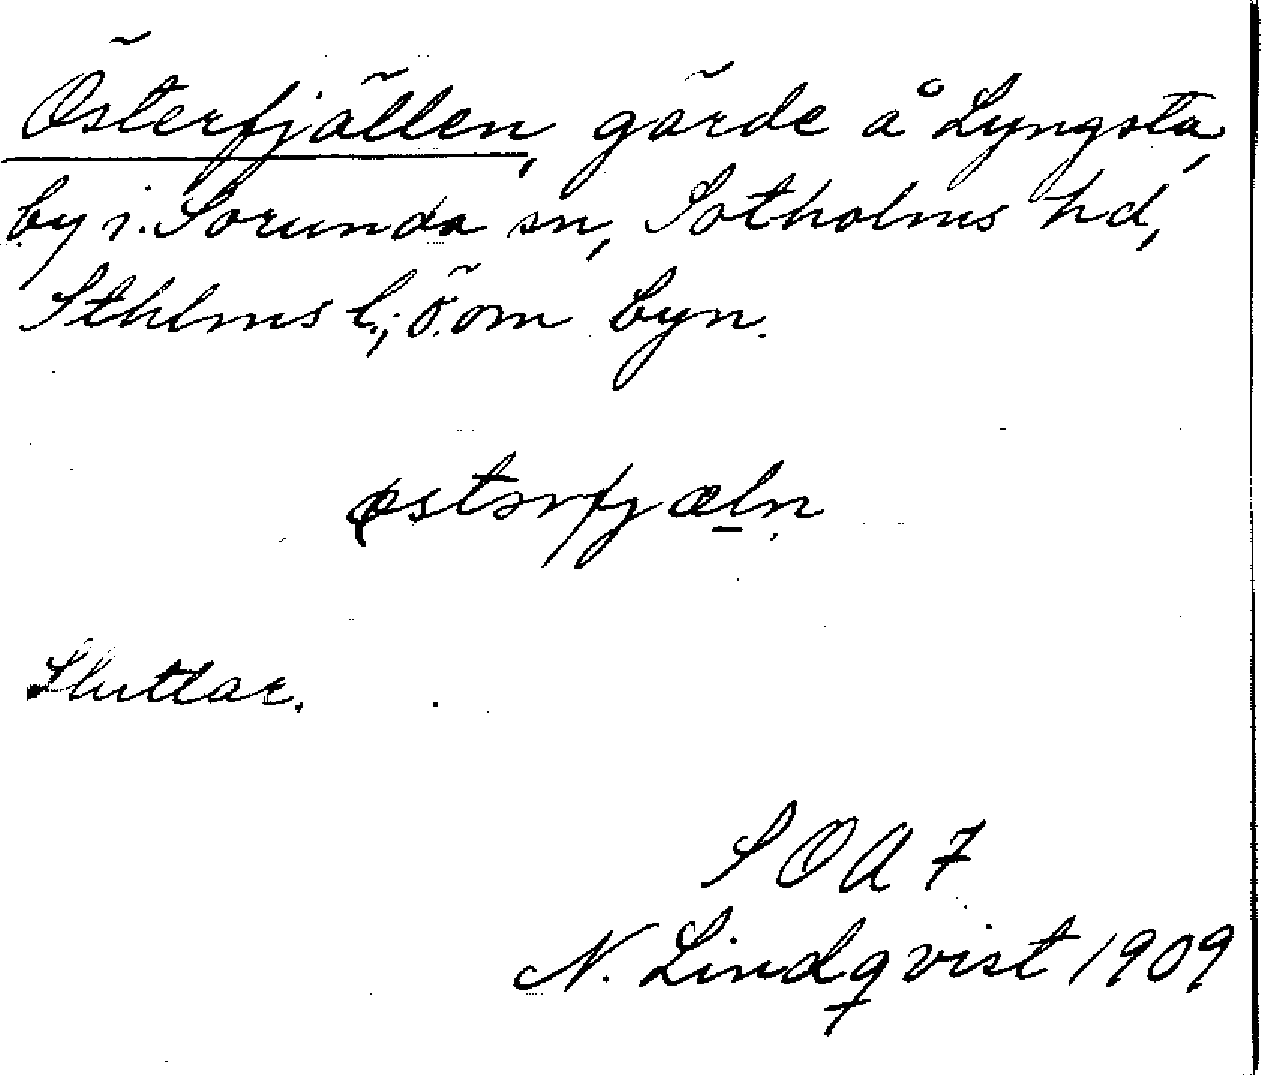 Österfjällen, gärde å Lyngsta,
by i Sorunda sn, Sotholms hd,
Sthlms l.; ö. om byn.
østərfjæln
Sluttar.
SOA 7
N. Lindqvist 1909